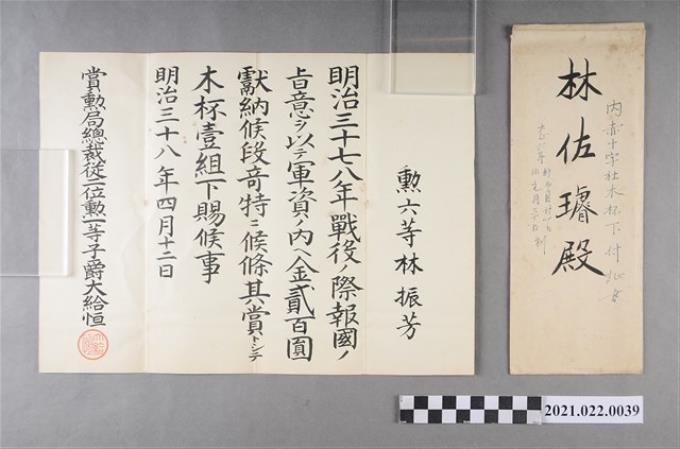 勲六等林振芳
明治三十七八年戰役ノ際報國ノ
旨意ヲ以テ軍資ノ内ヘ金貳百圓
獻納候段奇特ニ候條其賞トシテ
木杯壹組下賜候事
明治三十八年四月十二日
賞勲局總裁從二位勲一等子爵大給恒
内赤十字社木杯下付
林佐璿殿
2021.022.0039